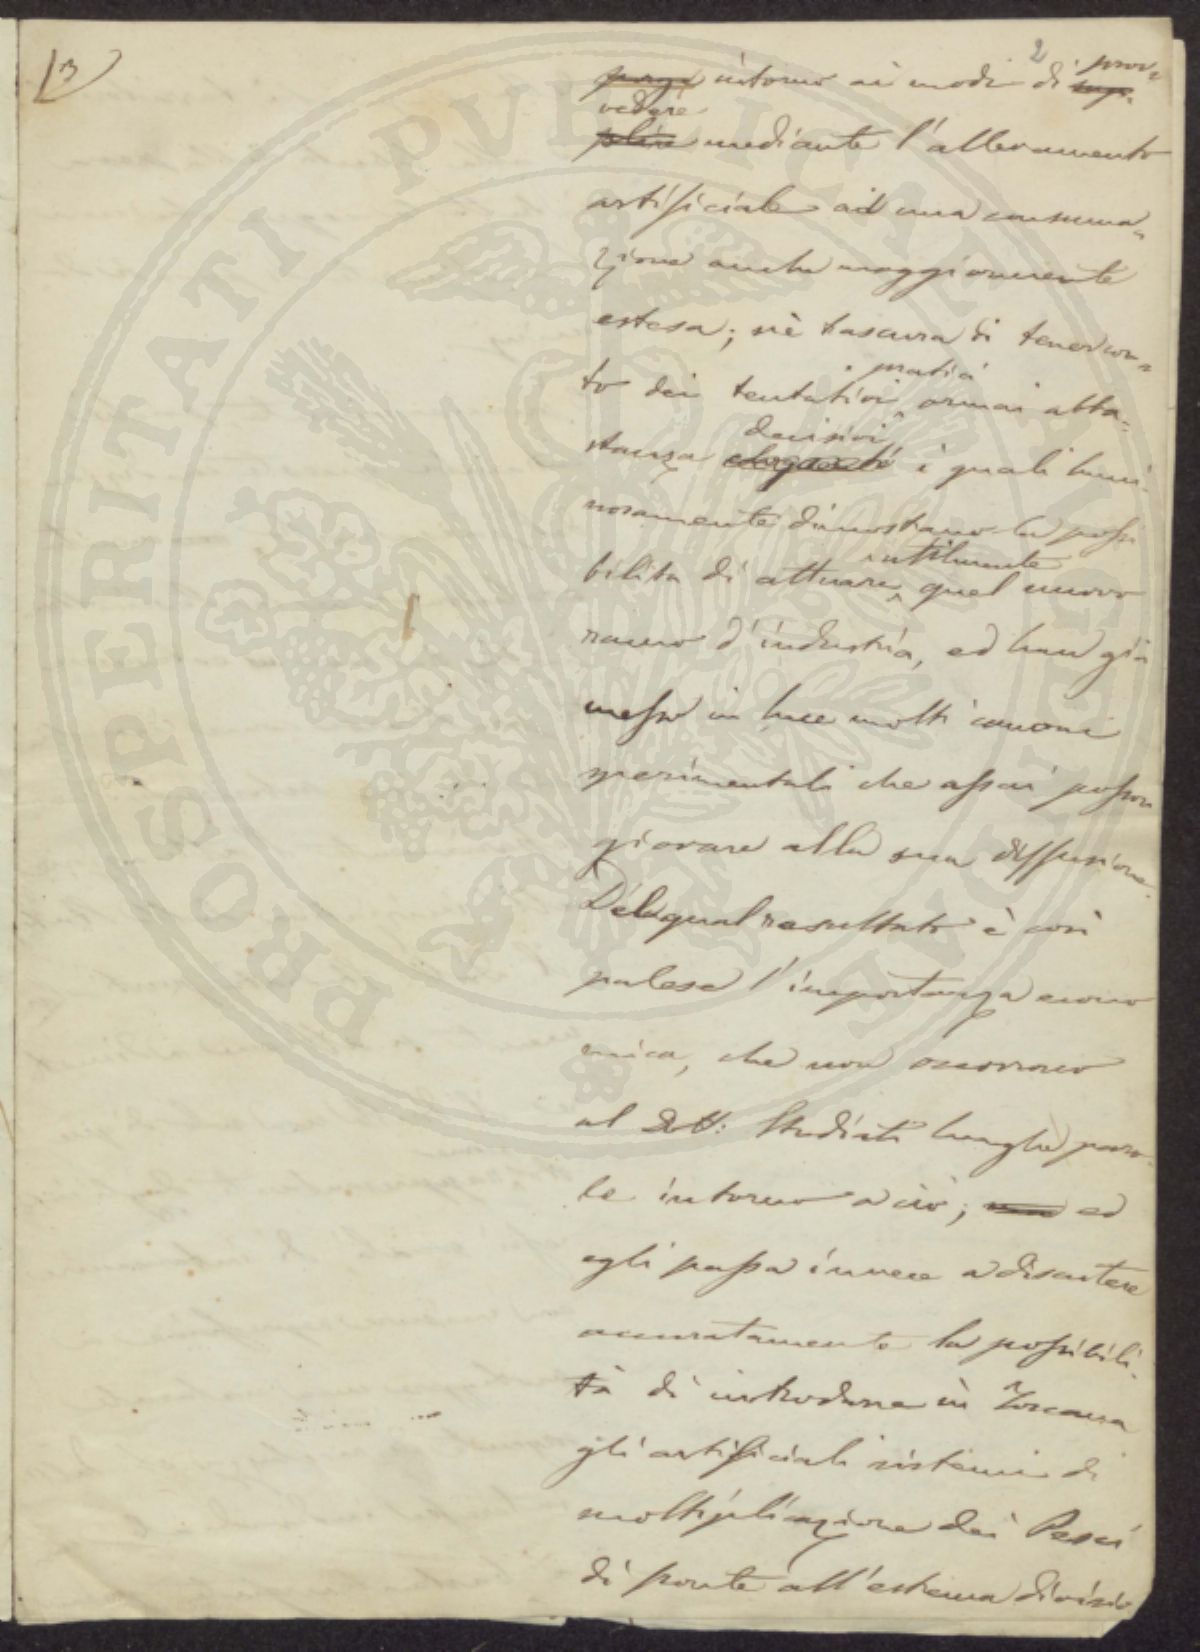 13
2
prov=
porga intorno ai modi di sup=
vedere
plire mediante l'allevamento
artificiale ad una consuma=
zione anche maggiormente
estesa; nè trascura di tener con=
pratici
to dei tentativi ormai abba=
decisivi
stanza i quali lumi=
nosamente dimostrano la possi
utilmente
bilita di attuare quel nuovo
ramo d'industria, ed han già
messo in luce molti canoni
sperimentali che assai posson
giovare alla sua diffusione.
Del qual resultato è così
palese l'importanza econo
mica, che non occorrono
al Dott: Studiati lunghe paro=
le intorno a ciò; ed
egli passa invece a discutere
accuratamente la possibili=
tà di introdurre in Toscana
gli artificiali sistemi di
moltiplicazione dei Pesci
di fronte all'estrema divisio
PROSPERITATI PUBLICAE AUGENDAE